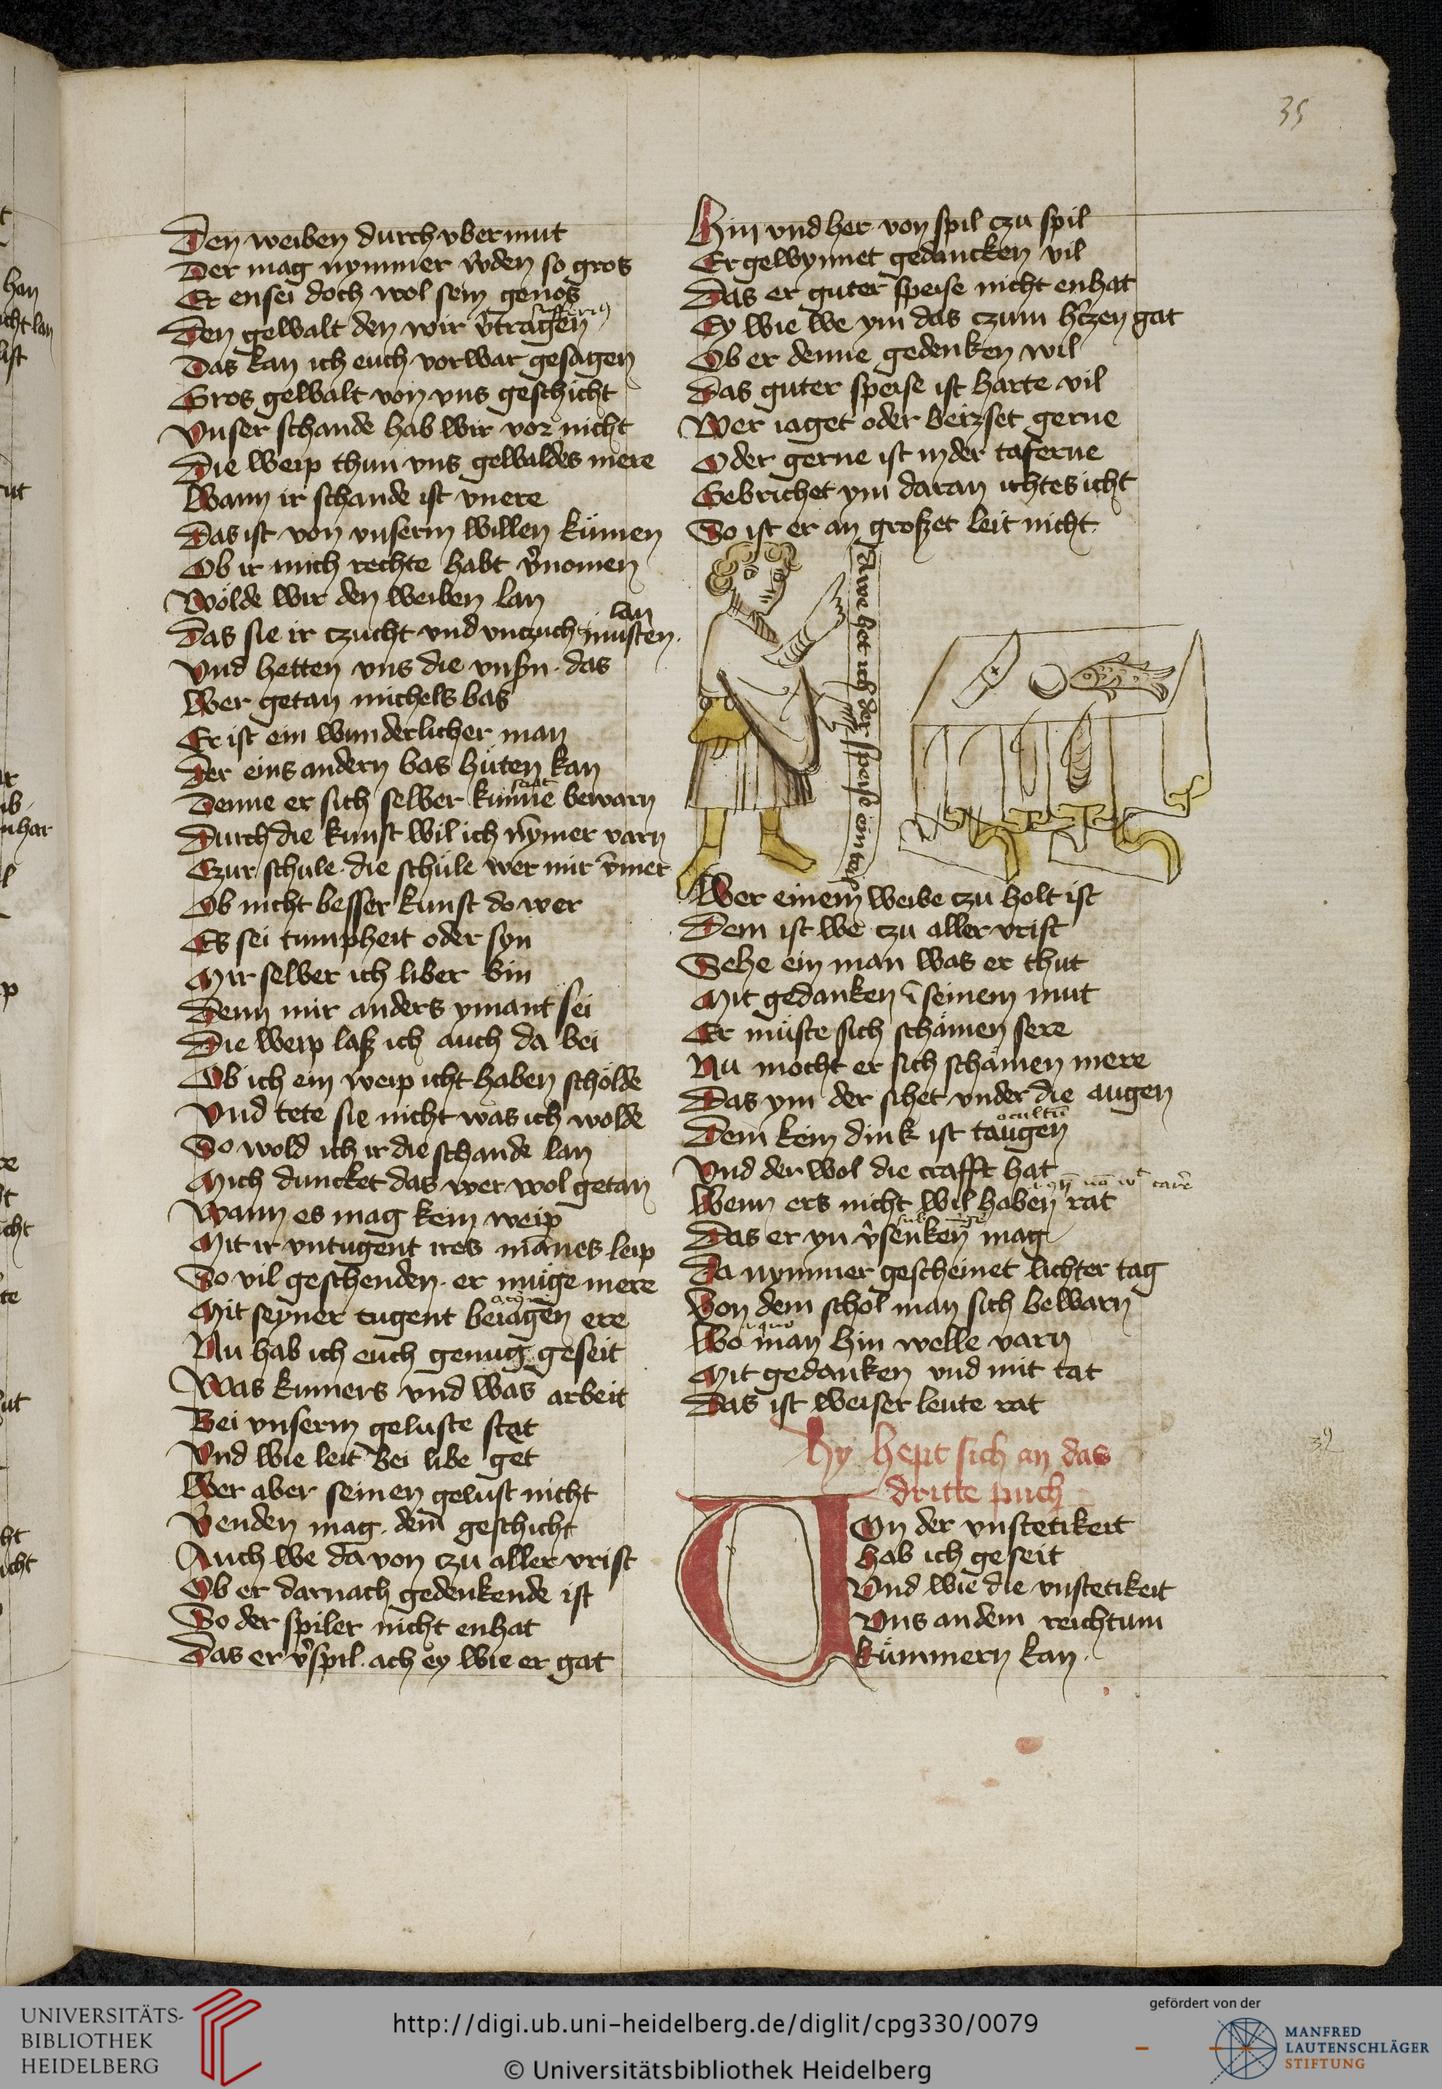 35
Den weiben durch vbermut
Der mag nymmer w̄den so gros
Er ensei doch wol sein genos
Den gewalt den wir v̄tragen
Das kan ich euch vorwar gesagen
Gros gewalt von vns geschicht
Vnser schande hab wir vor nicht
Die weip thun vns gewaldes mere
Wann ir schande ist vnere
Das ist von vnserm willen kümen
Ob ir mich rechte habt v̄nomen
Wolde wir den weiben lan
lan
Das sie ir czucht vnd vnczucht musten
Vnd hetten vns die vnsn̄ das
Wer getan michels bas
Er ist ein wunderlicher man
Der eins andern bas hüten kan
Denne er sich selber künne bewarn
Durch die kunst wil ich nȳmer varn
Czur schule die schule wer mir v̄mer
Ob nicht besser kunst do wer
Es sei tumpheit oder syn
Mir selber ich liber bin
Denn mir anders ymant sei
Die weip lasz ich auch da bei
Ob ich ein weip icht haben scholde
Vnd tete sie nicht was ich wolde
So wold ich ir die schande lan
Mich duncket das wer wol getan
Wann es mag kein weip
Mit ir vntugent ires mānes leip
So vil geschenden er müge mere
Mit seyner tugent beiagen ere
Nu hab ich euch genug geseit
Was kumers vnd was arbeit
Bei vnserm geluste stet
Vnd wie leit bei libe get
Wer aber seinen gelust nicht
Venden mag dem geschicht
Auch we da von czu aller vrist
Ob er darnach gedenkende ist
So der spiler nicht enhat
Das er v̄spil ach ey wie er gat
Hin vnd her von spil czu spil
Er gewynnet gedancken vil
Das er guter speise nicht enhat
Ey wie we ym das czum h̄czen gat
Ob er denne gedenken wil
Das guter speise ist harte vil
Wer iaget oder beizset gerne
Oder gerne ist in der taferne
Gebrichet ym daran ichtes icht
So ist er an groszet leit nicht
Awe het ich der speise ein teil
Wer einem weibe czu holt ist
Dem ist we czu aller vrist
Sehe ein man was er thut
Mit gedanken ī seinem mut
Er müste sich schämen sere
Nu mocht er sich schämen mere
Das ym der sihet vnder die augen
occultū
Dem kein dink ist taugen
Vnd der wol die crafft hat
Wenn ers nicht wil haben rat
Das er yn v̄senken mag
Da nymmer gescheinet lichter tag
Von dem schol man sich bewarn
Wo man hin welle varn
Mit gedanken vnd mit tat
Das ist weiser leute rat
Hy hept sich an das
dritte puch
39
Von der vnstetikeit
hab ich geseit
Vnd wie die vnstetikeit
Vns an dem reichtum
kümmern kan
UNIVERSITÄTS-
BIBLIOTHEK
HEIDELBERG
http://digi.ub.uni-heidelberg.de/diglit/cpg330/0079
© Universitätsbibliothek Heidelberg
gefördert von der
MANFRED
LAUTENSCHLÄGER
STIFTUNG